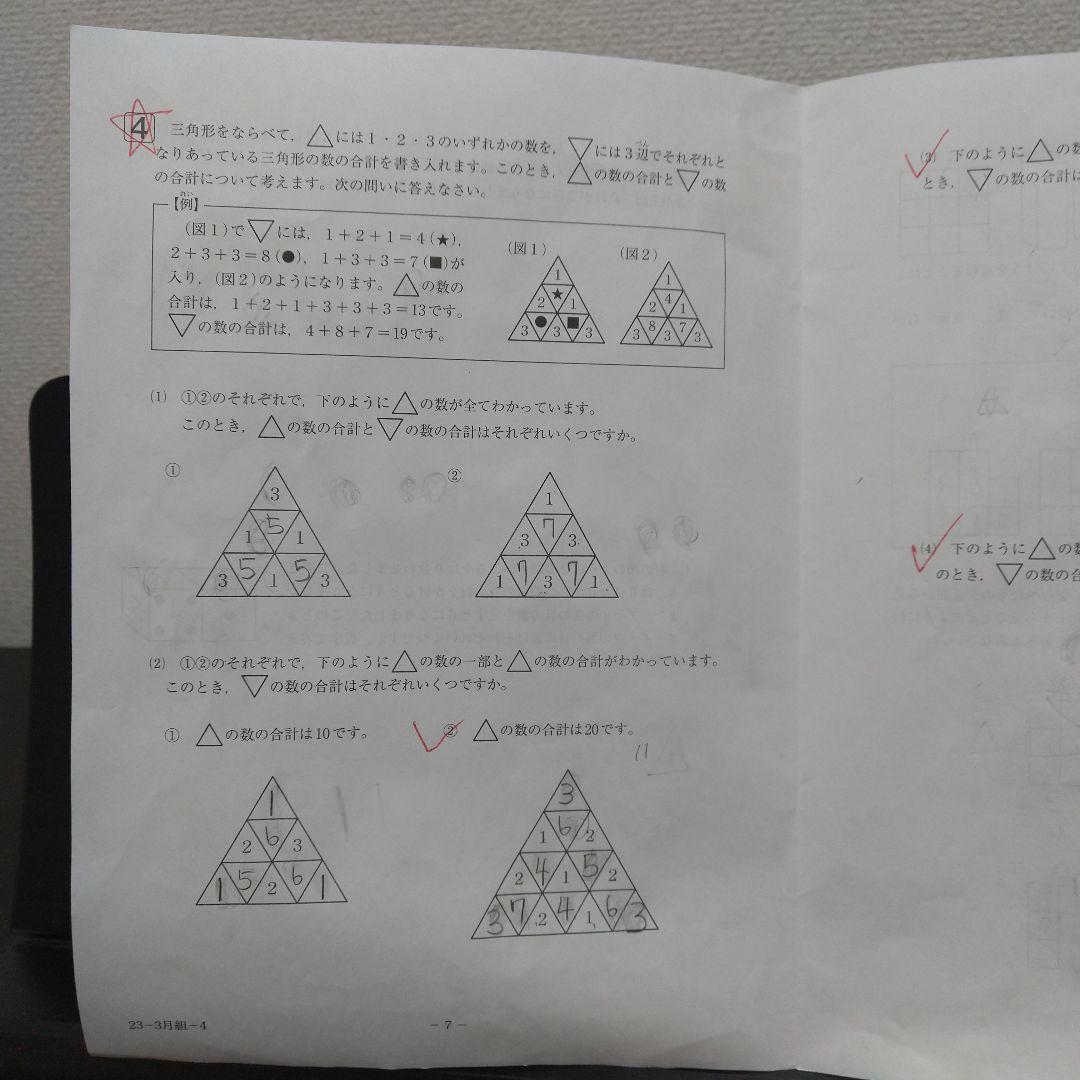 4 三角形をならべて，△には1・2・3のいずれかの数を，▽には3辺でそれぞれと
なりあっている三角形の数の合計を書き入れます。このとき，△の数の合計と▽の数
の合計について考えます。次の問いに答えなさい。
【例】
(図1)で▽には，1＋2＋1＝4(★)，
2＋3＋3＝8(●)，1＋3＋3＝7(■)が
入り，(図2)のようになります。△の数の
合計は，1＋2＋1＋3＋3＋3＝13です。
▽の数の合計は，4＋8＋7＝19です。
(図1)
1
2 ★ 1
3 ● 3 ■ 3
(図2)
1
2 4 1
3 8 3 7 3
(1) ①②のそれぞれで，下のように△の数が全てわかっています。
このとき，△の数の合計と▽の数の合計はそれぞれいくつですか。
①
3
1 5 1
3 5 1 5 3
②
1
3 7 3
1 7 3 7 1
(2) ①②のそれぞれで，下のように△の数の一部と△の数の合計がわかっています。
このとき，▽の数の合計はそれぞれいくつですか。
① △の数の合計は10です。
1
2 6 3
1 5 2 6 1
② △の数の合計は20です。
11
3
1 6 2
2 4 1 5 2
3 7 2 4 1 6 3
23−3月組−4
− 7 −
(3) 下のように△の数
とき，▽の数の合計は
(4) 下のように△の数
のとき，▽の数の合